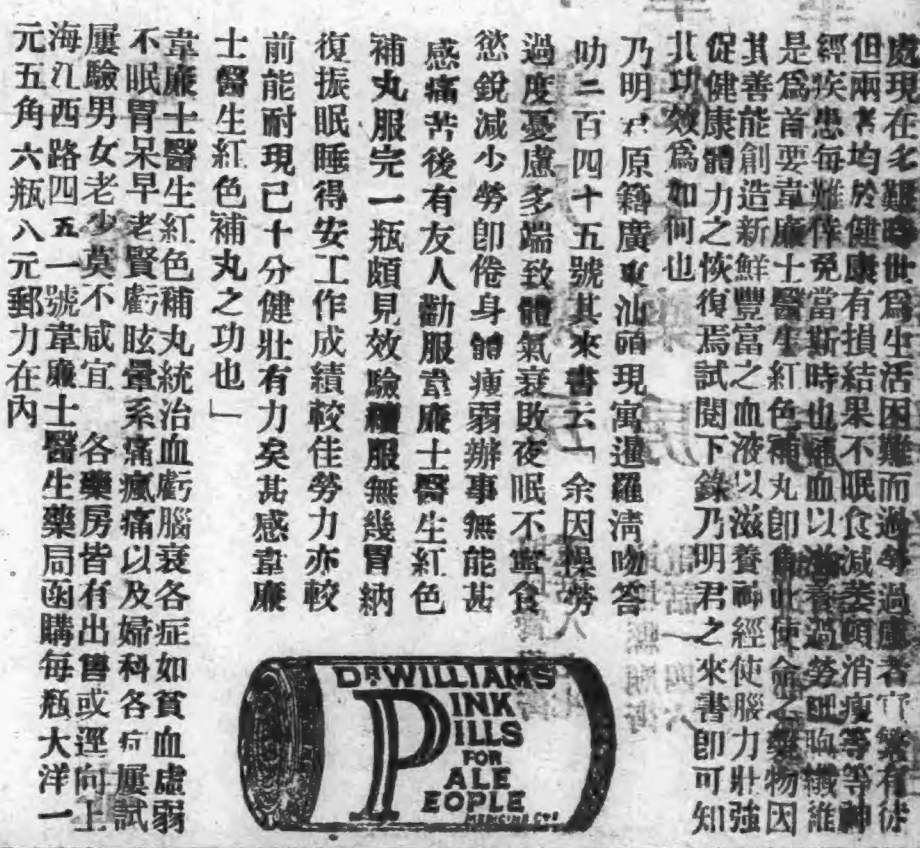 處現在多難時世爲生活困難而過勞過慮者實繁有徒
但兩者均於健康有損結果不眠食減萎頓消瘦等等神
經疾患每難倖免當斯時也補血以滋養過勞細胞纖維
是爲首要韋廉士醫生紅色補丸卽負此使命之藥物因
其善能創造新鮮豐富之血液以滋養神經使腦力壯強
促健康體力之恢復焉試閱下錄乃明君之來書卽可知
其功效爲如何也
乃明君原籍廣東汕頭現寓暹羅淸吻答
叻二百四十五號其來書云「余因操勞
過度憂慮多端致體氣衰敗夜眠不寗食
慾銳減少勞卽倦身體瘦弱辦事無能甚
感痛苦後有友人勸服韋廉士醫生紅色
補丸服完一瓶頗見效驗續服無幾胃納
復振眠睡得安工作成績較佳勞力亦較
前能耐現已十分健壯有力矣甚感韋廉
士醫生紅色補丸之功也」
韋廉士醫生紅色補丸統治血虧腦衰各症如貧血虛弱
不眠胃呆早老賢虧眩暈系痛瘋痛以及婦科各症屢試
屢驗男女老少莫不咸宜 各藥房皆有出售或逕向上
海江西路四五一號韋廉士醫生藥局函購每瓶大洋一
元五角六瓶八元郵力在內
DR WILLIAMS'
PINK
PILLS
FOR
PALE
PEOPLE
MEDICINE CO.